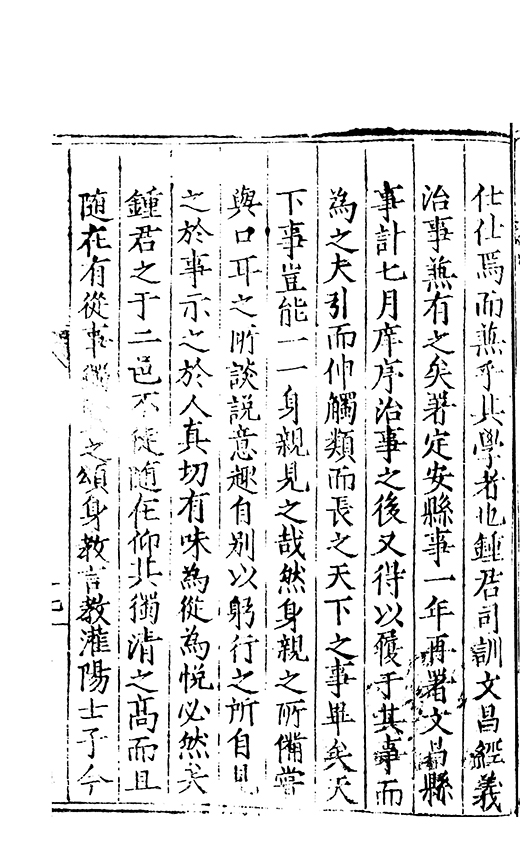 仕仕焉而無乎其學者也鍾君司訓文昌經義
治事兼有之矣署定安縣事一年再署文昌縣
事計七月庠序治事之後又得以履于其事而
為之夫引而伸觸類而長之天下之事畢矣天
下事豈能一一身親見之哉然身親之所備嘗
與口耳之所談說意趣自别以躬行之所自見
之於事示之於人真切有味為從為悅必然矣
鍾君之于二邑不徒隨在仰其獨清之高而且
隨在有從事之頌身教言教灌陽士子今